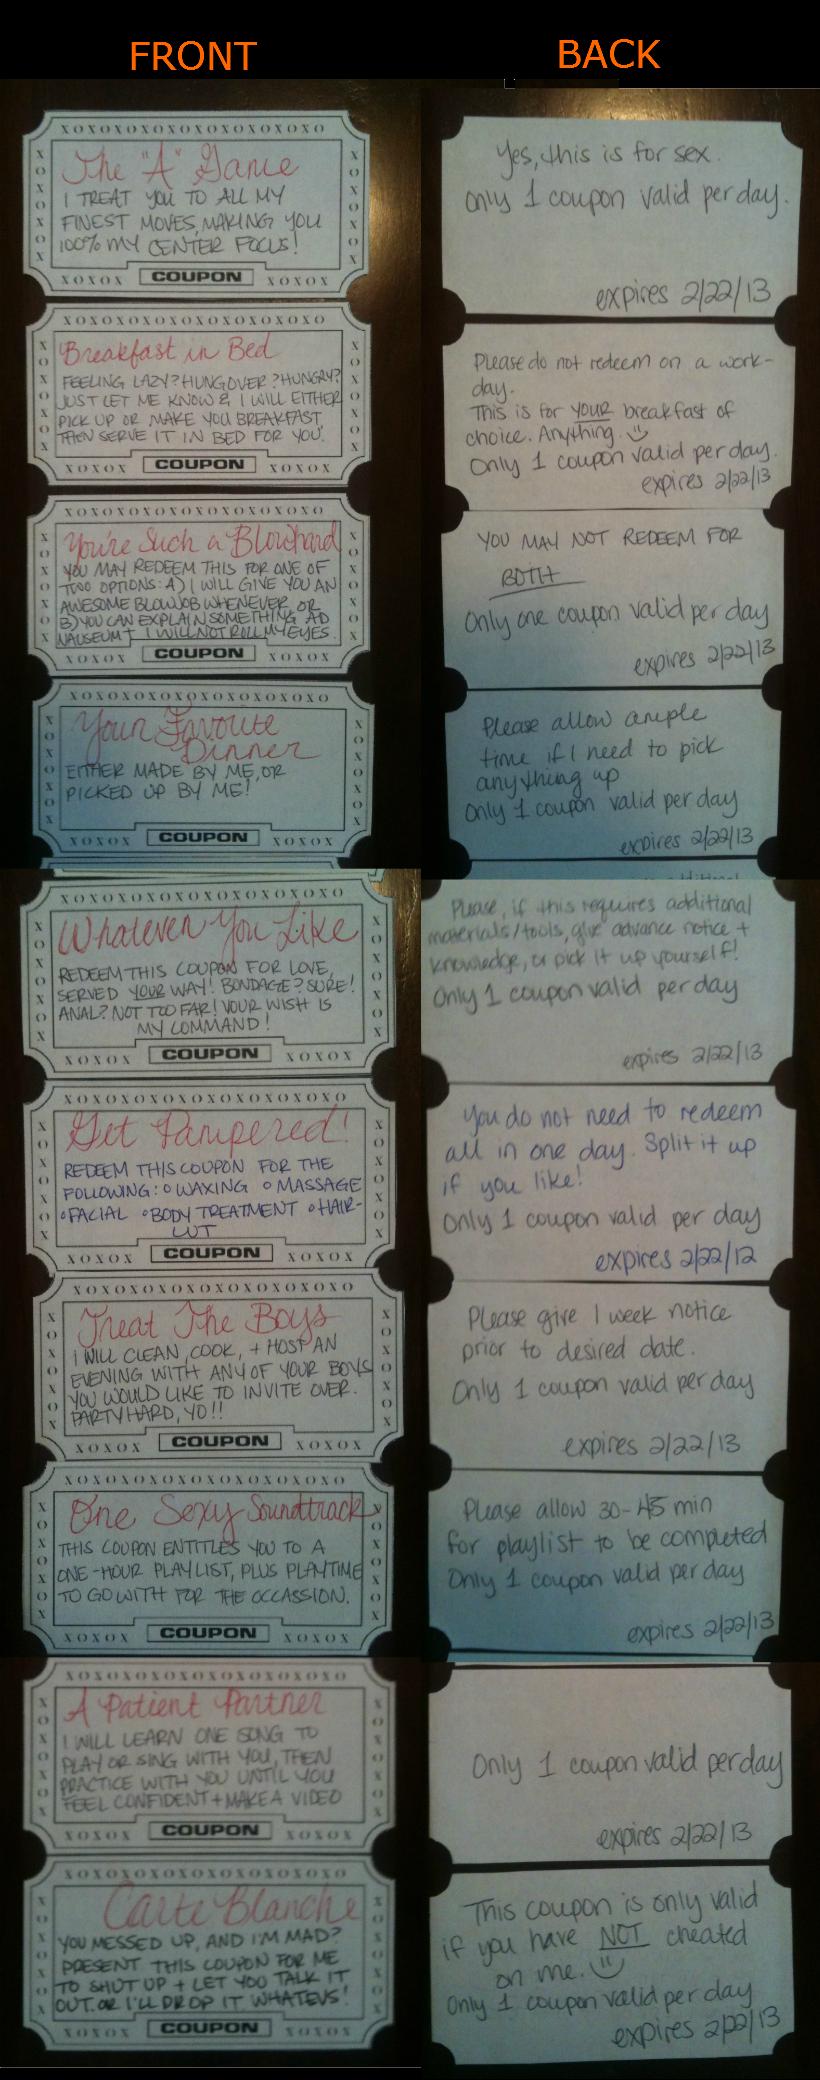 FRONT
BACK
XOXOXOXOXOXOXOXOXOXO
The "A" Game
I TREAT YOU TO ALL MY
FINEST MOVES, MAKING YOU
100% MY CENTER FOCUS!
XOXOX COUPON XOXOX
Yes, this is for sex.
Only 1 coupon valid per day.
expires 2/22/13
XOXOXOXOXOXOXOXOXOXO
Breakfast in Bed
FEELING LAZY? HUNGOVER? HUNGRY?
JUST LET ME KNOW & I WILL EITHER
PICK UP OR MAKE YOU BREAKFAST,
THEN SERVE IT IN BED FOR YOU.
XOXOX COUPON XOXOX
Please do not redeem on a work-
day.
This is for YOUR breakfast of
choice. Anything.
Only 1 coupon valid per day.
expires 2/22/13
XOXOXOXOXOXOXOXOXOXO
You're Such a Blowhard
YOU MAY REDEEM THIS FOR ONE OF
TWO OPTIONS: A) I WILL GIVE YOU AN
AWESOME BLOWJOB WHENEVER, OR
B) YOU CAN EXPLAIN SOMETHING AD
NAUSEUM + I WILL NOT ROLL MY EYES.
XOXOX COUPON XOXOX
YOU MAY NOT REDEEM FOR
BOTH
Only one coupon valid per day
expires 2/22/13
XOXOXOXOXOXOXOXOXOXO
Your Favorite
Dinner
EITHER MADE BY ME, OR
PICKED UP BY ME!
XOXOX COUPON XOXOX
Please allow ample
time if I need to pick
anything up
Only 1 coupon valid per day
expires 2/22/13
XOXOXOXOXOXOXOXOXOXO
Whatever You Like
REDEEM THIS COUPON FOR LOVE,
SERVED YOUR WAY! BONDAGE? SURE!
ANAL? NOT TOO FAR! YOUR WISH IS
MY COMMAND!
XOXOX COUPON XOXOX
Please, if this requires additional
materials/tools, give advance notice +
knowledge, or pick it up yourself!
Only 1 coupon valid per day
expires 2/22/13
XOXOXOXOXOXOXOXOXOXO
Get Pampered!
REDEEM THIS COUPON FOR THE
FOLLOWING: o WAXING o MASSAGE
o FACIAL o BODY TREATMENT o HAIR-
CUT
XOXOX COUPON XOXOX
You do not need to redeem
all in one day. Split it up
if you like!
Only 1 coupon valid per day
expires 2/22/12
XOXOXOXOXOXOXOXOXOXO
Treat The Boys
I WILL CLEAN, COOK, + HOST AN
EVENING WITH ANY OF YOUR BOYS
YOU WOULD LIKE TO INVITE OVER.
PARTY HARD, YO!!
XOXOX COUPON XOXOX
Please give 1 week notice
prior to desired date.
Only 1 coupon valid per day
expires 2/22/13
XOXOXOXOXOXOXOXOXOXO
One Sexy Soundtrack
THIS COUPON ENTITLES YOU TO A
ONE-HOUR PLAYLIST, PLUS PLAYTIME
TO GO WITH FOR THE OCCASSION.
XOXOX COUPON XOXOX
Please allow 30-45 min
for playlist to be completed
Only 1 coupon valid per day
expires 2/22/13
XOXOXOXOXOXOXOXOXOXO
A Patient Partner
I WILL LEARN ONE SONG TO
PLAY OR SING WITH YOU, THEN
PRACTICE WITH YOU UNTIL YOU
FEEL CONFIDENT + MAKE A VIDEO
XOXOX COUPON XOXOX
Only 1 coupon valid per day
expires 2/22/13
XOXOXOXOXOXOXOXOXOXO
Carte Blanche
YOU MESSED UP, AND I'M MAD?
PRESENT THIS COUPON FOR ME
TO SHUT UP + LET YOU TALK IT
OUT. OR I'LL DROP IT WHATEVS!
XOXOX COUPON XOXOX
This coupon is only valid
if you have NOT cheated
on me.
Only 1 coupon valid per day
expires 2/22/13